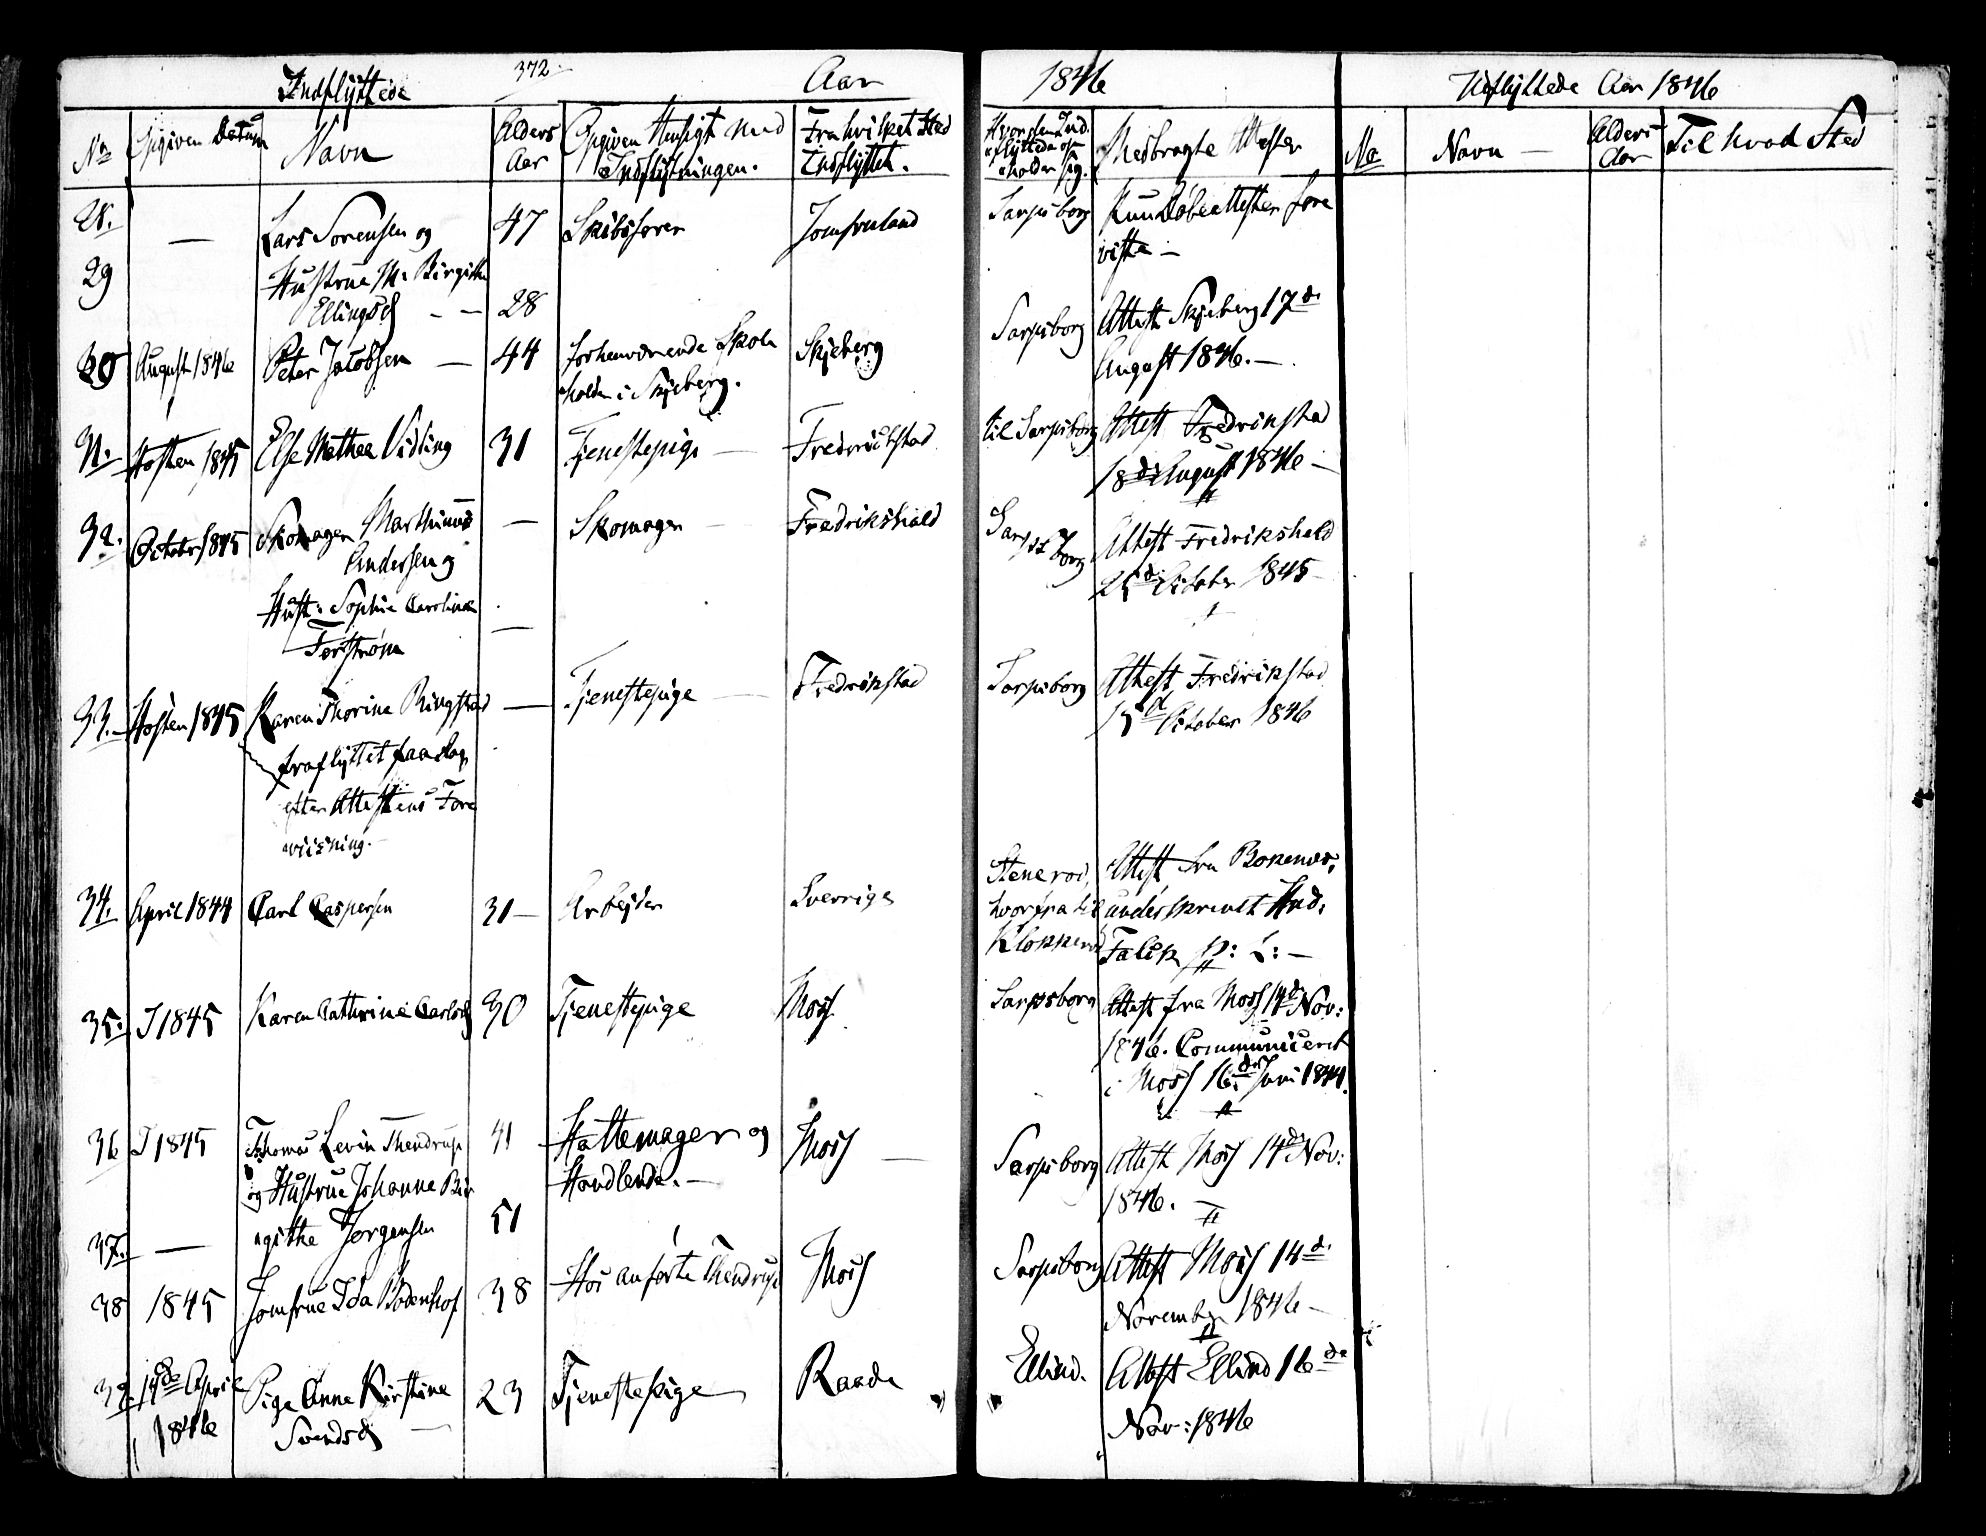 Indflyttede 372 Aar 1846 Udflyttede Aar 1846
No Opgiven Datum Navn Alders Aar Opgiven Hensigt med Indflytningen. Fra hvilket Sted Indflyttet. Hvor den Indflyttede opholder sig. Medbragte Attester No Navn Alders Aar Til hvad Sted
28. — Lars Sørensen og 47 Skibsfører Jomfruland Sarpsborg Kun Døbeattester fore
viste —
29 Hustrue M. Birgitte
Ellingsd — — 28
30 August 1846 Peter Jacobsen — 44 forhenværende Skole Skjeberg Sarpsborg Attest Skjeberg 17de
holder i Skjeberg. August 1846. —
31. Høsten 1845 Else Mathea Vidling 31 Tjenestepige — Fredrikstad til Sarpsborg Attest Fredrikstad
18de August 1846 —
32. Octobr 1845 Skomager Marthinus — Skomager — Fredrikshald Sarpsborg Attest Fredrikshald
Andersen og 25de October 1845
Hust: Sophie Caroline —
Ferstrøm
33. Høsten 1845 Karen Thorine Ringstad — Tjenestepige — Fredrikstad Sarpsborg Attest Fredrikstad
15d October 1846
fraflyttet paa
efter Attestens Fore
viisning. —
34. April 1844 Carl Caspersen 31 — Arbejder Sverrige Stenerød, Attest fra Bokenæs,
hvorfra til underskrevet
Klokkerød Falck p: l: —
35. I 1845 Karen Cathrine Carlsd 30 Tjenestepige Moss Sarpsborg Attest fra Moss 14de Nov:
1846. Communiceret
i Moss 16de Juni 1844.
36 I 1845 Thomas Levin Thendrup 41 Hattemager og Moss — Sarpsborg Attest Moss 14de Nov:
og Hustrue Johanne Bir Handlende. — 1846. —
37. — gitthe Jørgensen 51
38 1845 Jomfrue Ida Bodenhof 38 Hos anførte Thendrup Moss Sarpsborg Attest Moss 14de
November 1846 —
39. 14de April Pige Anne Kirstine 23 Tjenestepige Raade Ellind. Attest Ellind 16de
1846 Svendsd — Nov: 1846